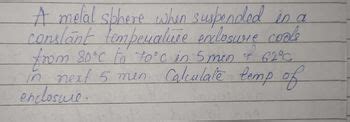 A metal sphere when suspended in a
constant temperature enclosure cools
from 80°C to 70°C in 5 min & 62°C
in next 5 min. Calculate temp of
enclosure.